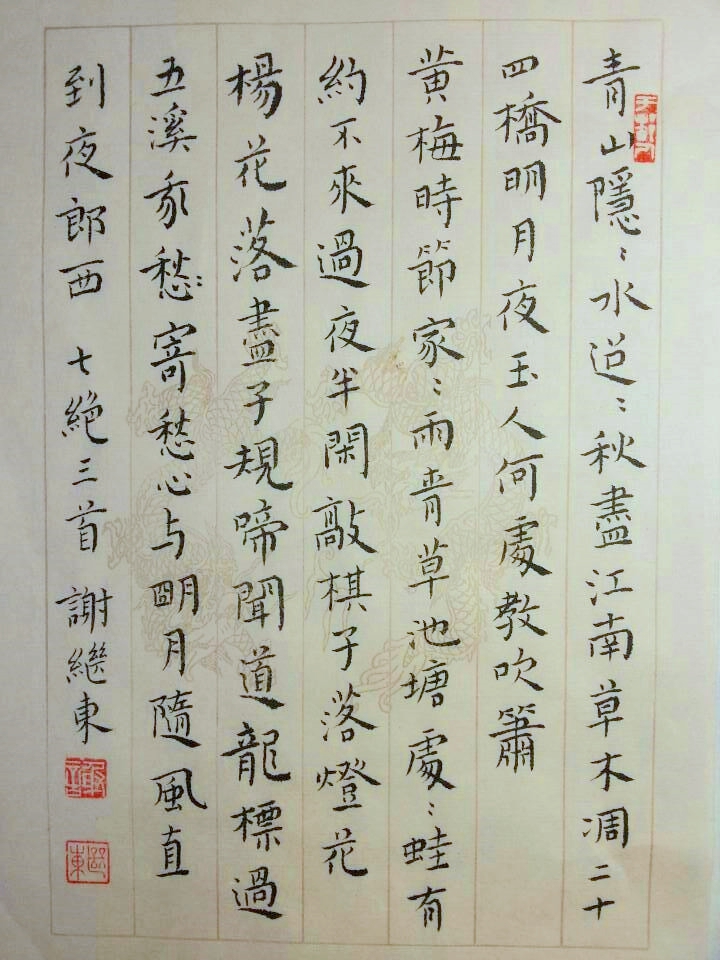 青山隱〻水迢〻秋盡江南草木凋二十
四橋明月夜玉人何處教吹簫
黃梅時節家〻雨青草池塘處〻蛙有
約不來過夜半閑敲棋子落燈花
楊花落盡子規啼聞道龍標過
五溪我愁：寄愁心与明月隨風直
到夜郎西 七絕三首 謝繼東